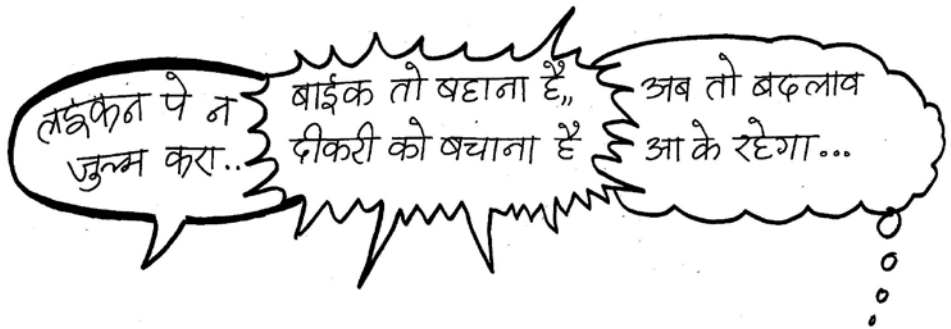 लइकन पे न
जुल्म करा..
बाईक तो बहाना है,,
दीकरी को बचाना है
अब तो बदलाव
आ के रहेगा...